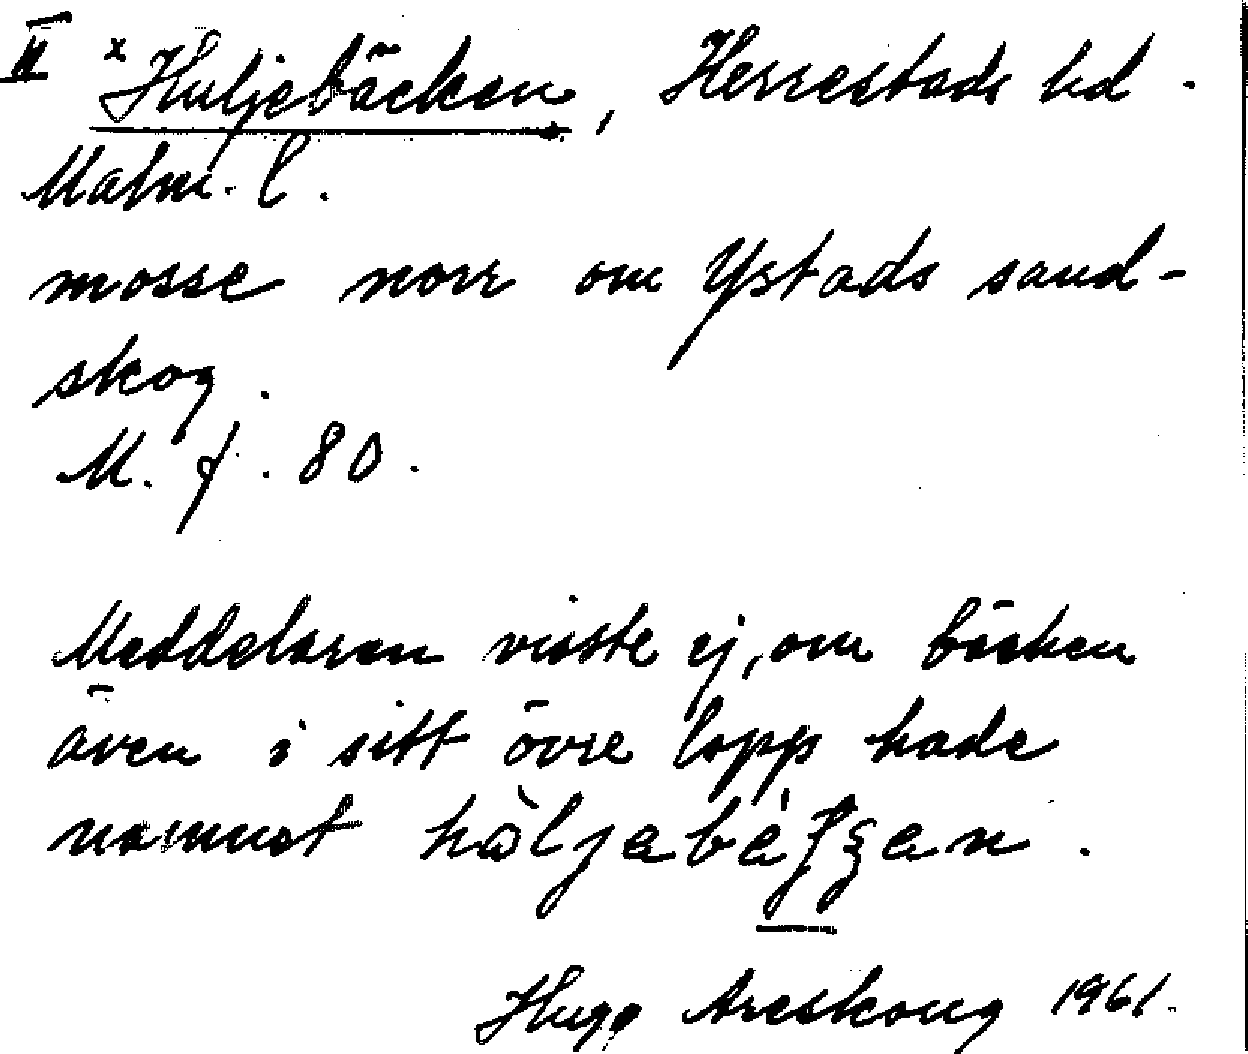 II x Huljebäcken, Herrestads hd.
Malm. l.
mosse norr om Ystads sand-
skog.
M. f. 80.
Meddelaren visste ej, om bäcken
även i sitt övre lopp hade
namnet
Hugo Areskoug 1961.